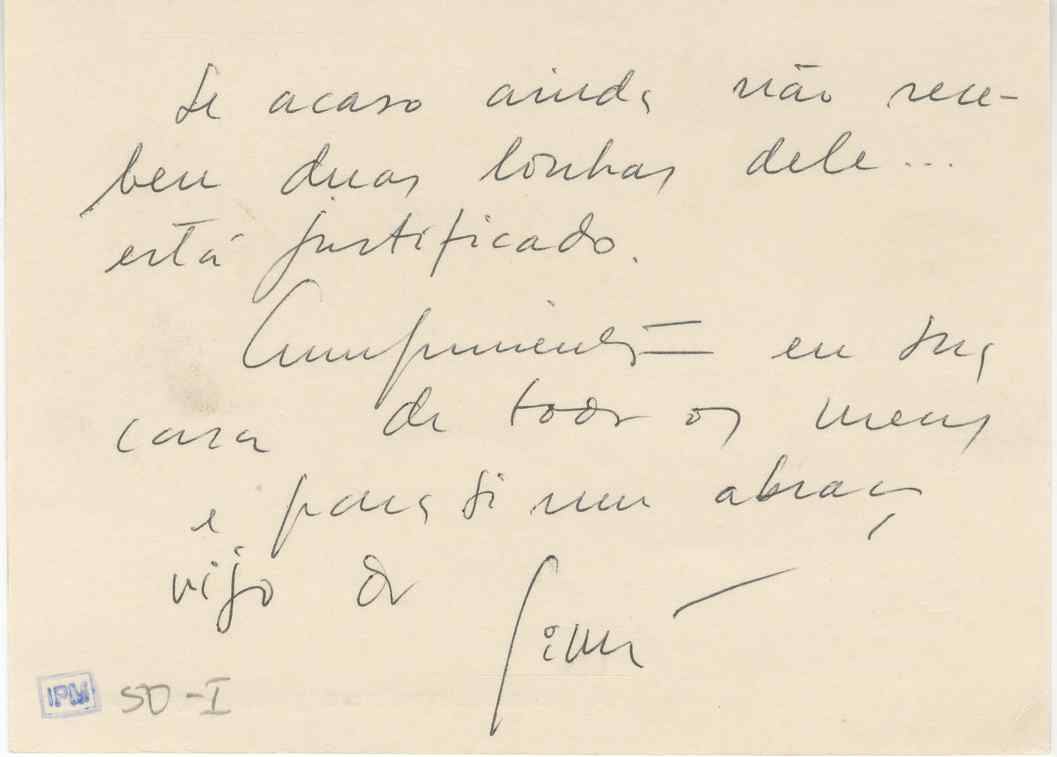 Se acaso ainda não rece-
beu duas linhas dele...
está justificado.
Cumprimentos em sua
casa de todos os meus
e para si um abraço
rijo do
IPM SD-I